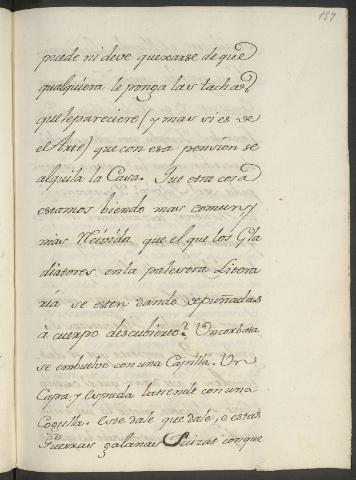 157
puede ni deve quexarse de que
qualquiera le ponga las tachas
que le pareciere (y mas si es de
el Arte) que con esa pension se
alquila la Casa. Que otra cosa
estamos biendo mas comun, y
mas Reñida que el que los Gla
diatores en la palestra Litera
ria se esten dando de puñadas
à cuerpo descubierto? Un corbata
se embuelve con una Capilla. Un
Capa y Espada las tiende con una
Cogulla. Este dale que dale, o estas
Guerras galanas Suizas con que